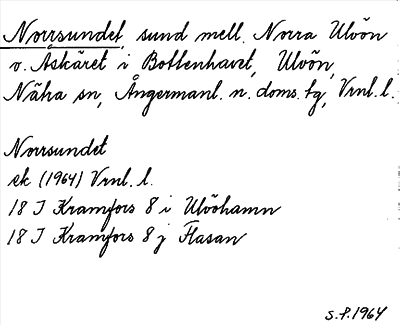 Norrsundet, sund mell. Norra Ulvön
v. Åskäret i Bottenhavet, Ulvön,
Nätra sn, Ångermanl. n. doms. tg, Vrnl. l.
Norrsundet
ek (1964) Vrnl. l.
18 I Kramfors 8 i Ulvöhamn
18 I Kramfors 8 j Flasan
S.F. 1964